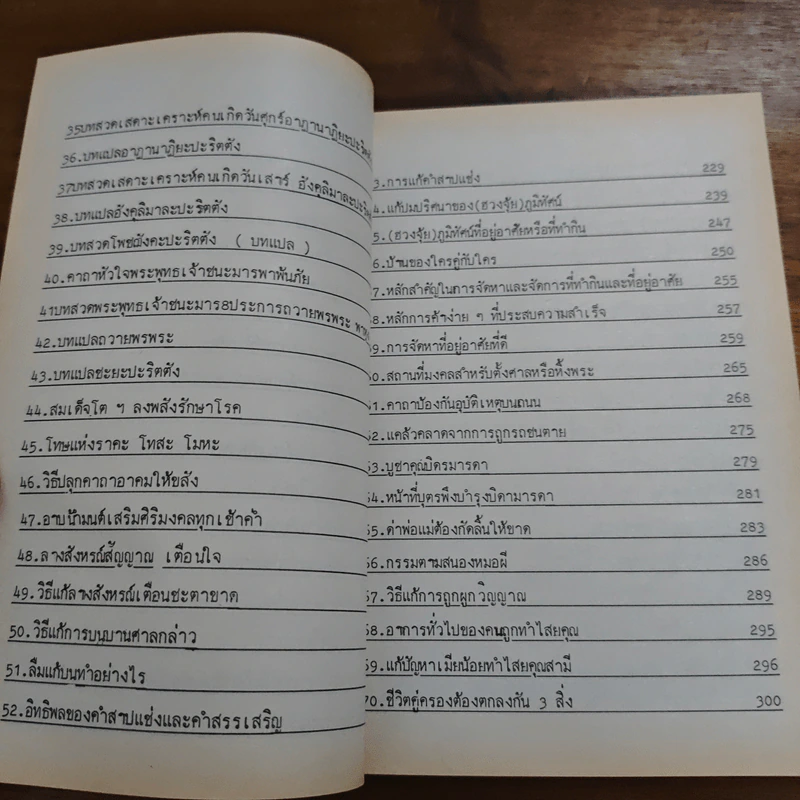 35บทสวดเสดาะเคราะห์คนเกิดวันศุกร์อาฏานาฏิยะปะริตตัง
36.บทแปลอาฏานาฏิยะปะริตตัง
37บทสวดเสดาะเคราะห์คนเกิดวันเสาร์ อังคุลิมาละปะริตตัง
38.บทแปลอังคุลิมาละปะริตตัง
39.บทสวดโพชฌังคะปะริตตัง ( บทแปล )
40.คาถาหัวใจพระพุทธเจ้าชนะมารพาพ้นภัย
41บทสวดพระพุทธเจ้าชนะมาร8ประการถวายพรพระ
42.บทแปลถวายพรพระ
43.บทแปลชะยะปะริตตัง
44.สมเด็จฺโต ฯ ลงพลังรักษาโรค
45.โทษแห่งราคะ โทสะ โมหะ
46.วิธีปลุกคาถาอาคมให้ขลัง
47.อาบน้ำมนต์เสริมศิริมงคลทุกเช้าค่ำ
48.ลางสังหรณ์สัญญาณ เตือนใจ
49.วิธีแก้ลางสังหรณ์เตือนชะตาขาด
50.วิธีแก้การบนบานศาลกล่าว
51.ลืมแก้บนทำอย่างไร
52.อิทธิพลของคำสาปแช่งและคำสรรเสริญ
3.การแก้คำสาปแช่ง 229
4.แก้ปมปริศนาของ(ฮวงจุ้ย)ภูมิทัศน์ 239
5.(ฮวงจุ้ย)ภูมิทัศน์ที่อยู่อาศัยหรือที่ทำกิน 247
6.บ้านของใครคู่กับใคร 250
7.หลักสำคัญในการจัดหาและจัดการที่ทำกินและที่อยู่อาศัย 255
8.หลักการค้าง่าย ๆ ที่ประสบความสำเร็จ 257
9.การจัดหาที่อยู่อาศัยที่ดี 259
60.สถานที่มงคลสำหรับตั้งศาลหรือหิ้งพระ 265
61.คาถาป้องกันอุบัติเหตุบนถนน 268
62.แคล้วคลาดจากการถูกรถชนตาย 275
63.บูชาคุณบิดรมารดา 279
64.หน้าที่บุตรพึงบำรุงบิดามารดา 281
65.ด่าพ่อแม่ต้องกัดลิ้นให้ขาด 283
66.กรรมตามสนองหมอผี 286
67.วิธีแก้การถูกผูกวิญญาณ 289
68.อาการทั่วไปของคนถูกทำไสยคุณ 295
69.แก้ปัญหาเมียน้อยทำไสยคุณสามี 296
70.ชีวิตคู่ครองต้องตกลงกัน 3 สิ่ง 300